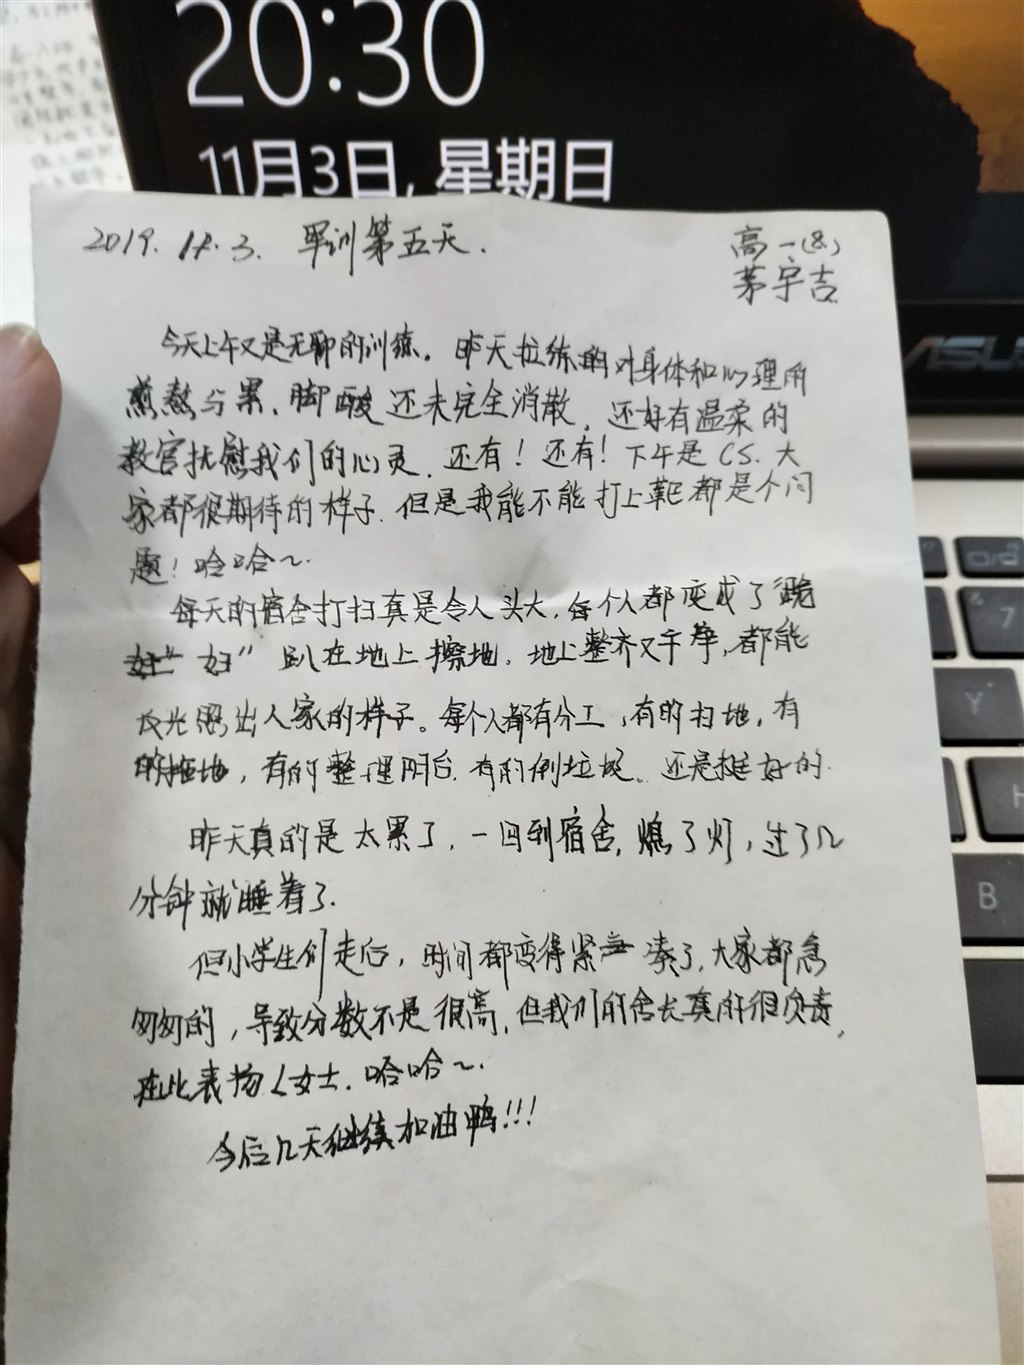 20:30
11月3日, 星期日
2019. 11. 3. 军训第五天.
高一(8)
茅宇吉
ASUS
今天上午又是无聊的训练。昨天拉练的对身体和心理的
煎熬与累、脚酸还未完全消散。还好有温柔的
教官抚慰我们的心灵. 还有！还有！下午是CS. 大
家都很期待的样子. 但是我能不能打上靶都是个问
题！哈哈～.
每天的宿舍打扫真是令人头大. 每个人都变成了“跪
妇” 趴在地上擦地. 地上整齐又干净, 都能
反光照出人家的样子。每个人都有分工, 有的扫地, 有
的拖地, 有的整理阳台. 有的倒垃圾. 还是挺好的.
昨天真的是太累了. 一回到宿舍, 熄了灯, 过了几
分钟就睡着了.
但小学生们走后, 时间都变得紧凑了. 大家都急
匆匆的, 导致分数不是很高. 但我们的舍长真的很负责,
在此表扬女士. 哈哈～.
今后几天继续加油鸭!!!
7
Y
H
B